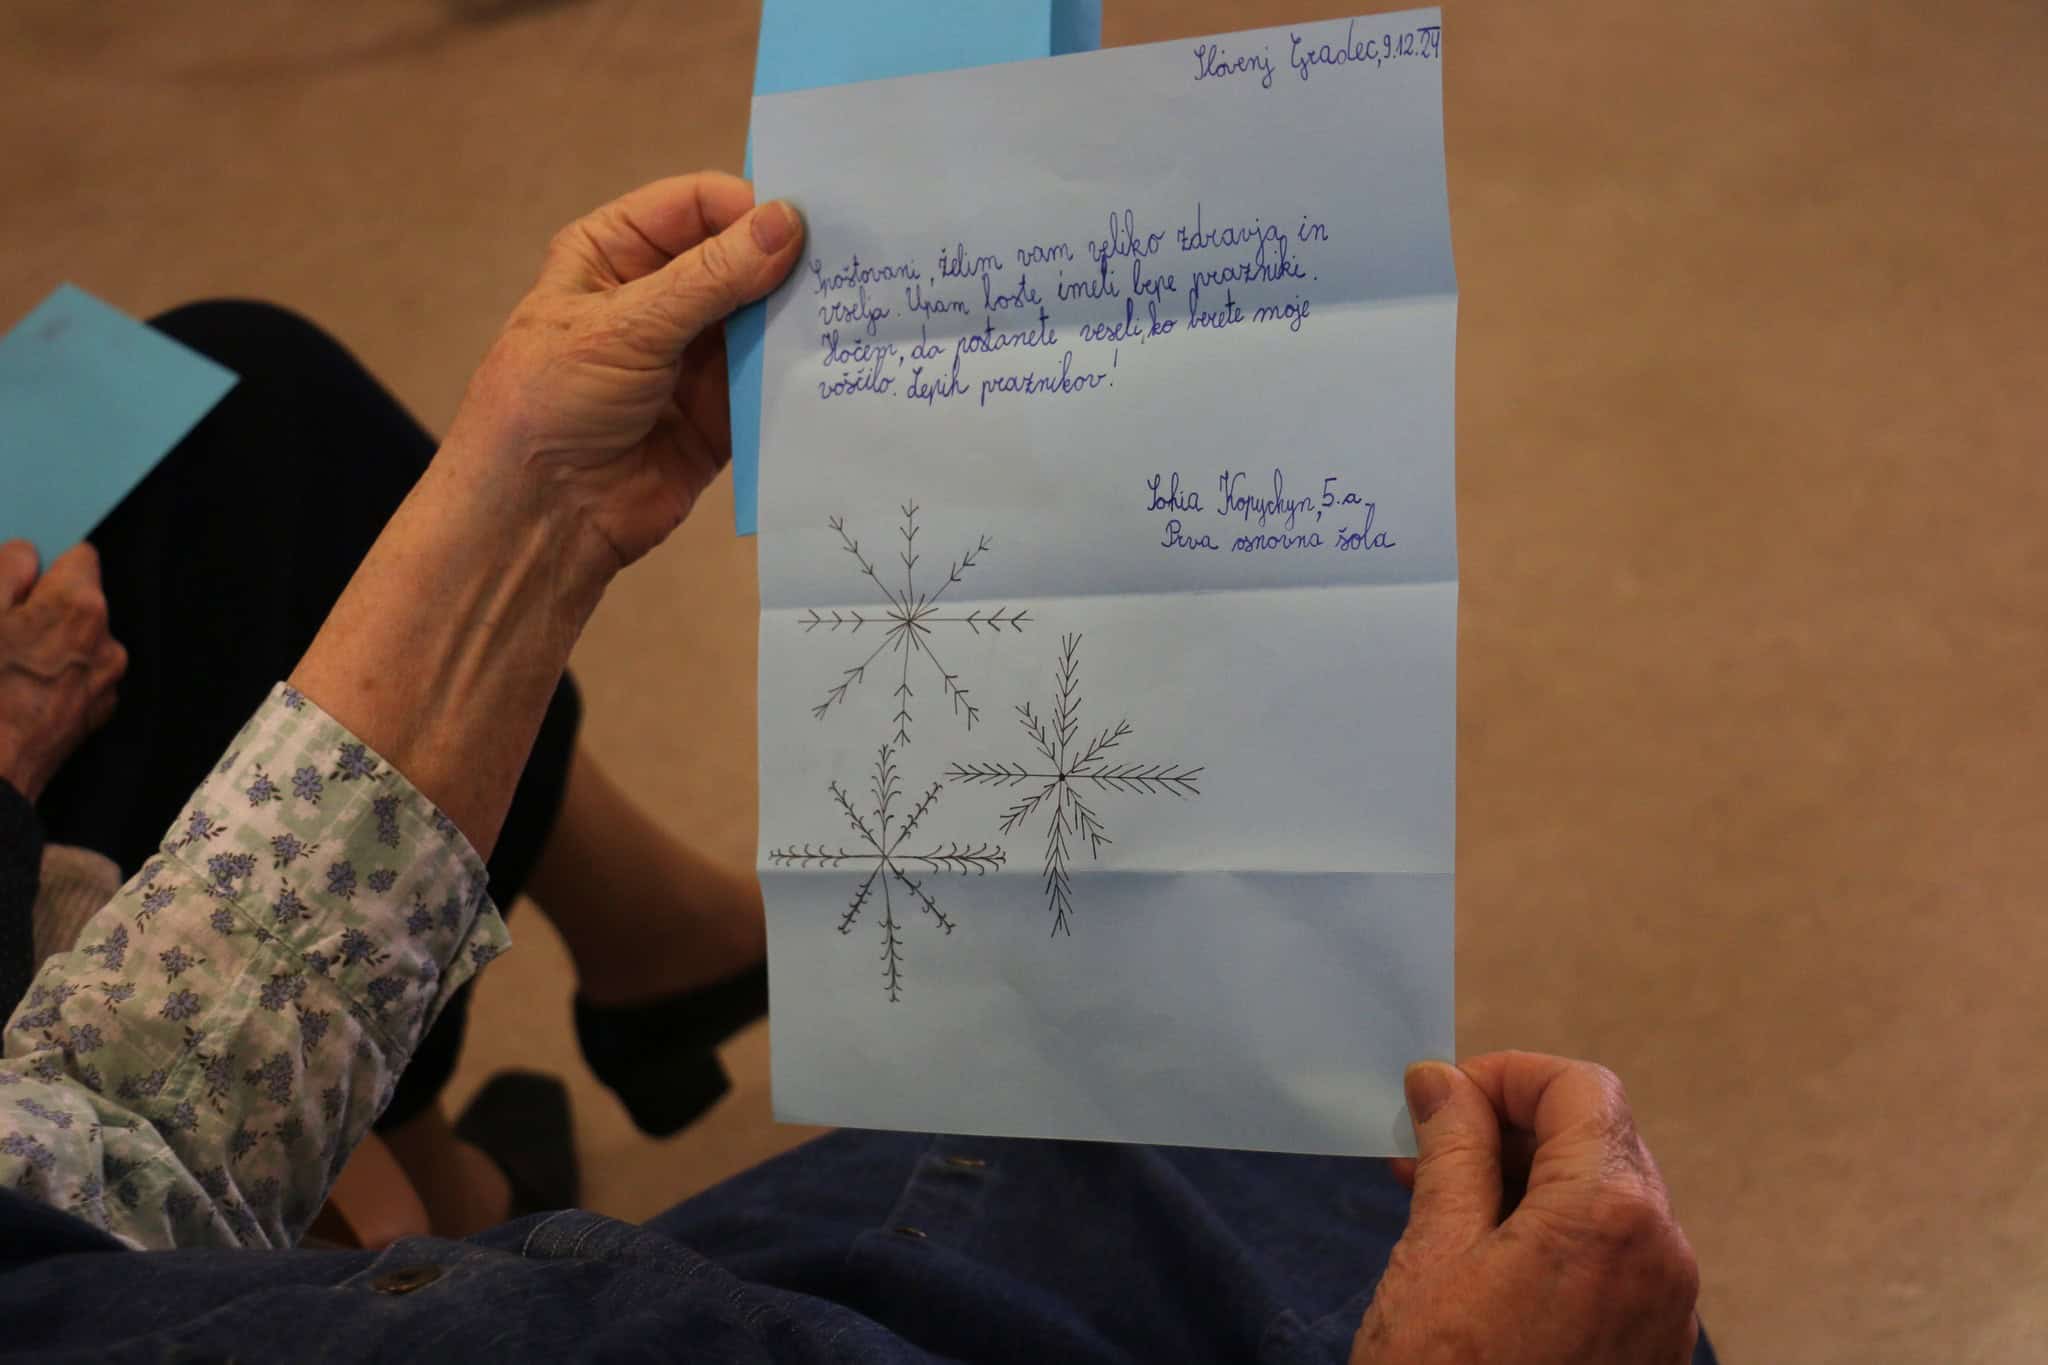 Slovenj Gradec, 9.12.24
Spoštovani, želim vam veliko zdravja in
veselja. Upam boste imeli lepe prazniki.
Hočem, da postanete veseli, ko berete moje
voščilo. Lepih praznikov!
Sofiia Kopychyn, 5.a,
Prva osnovna šola